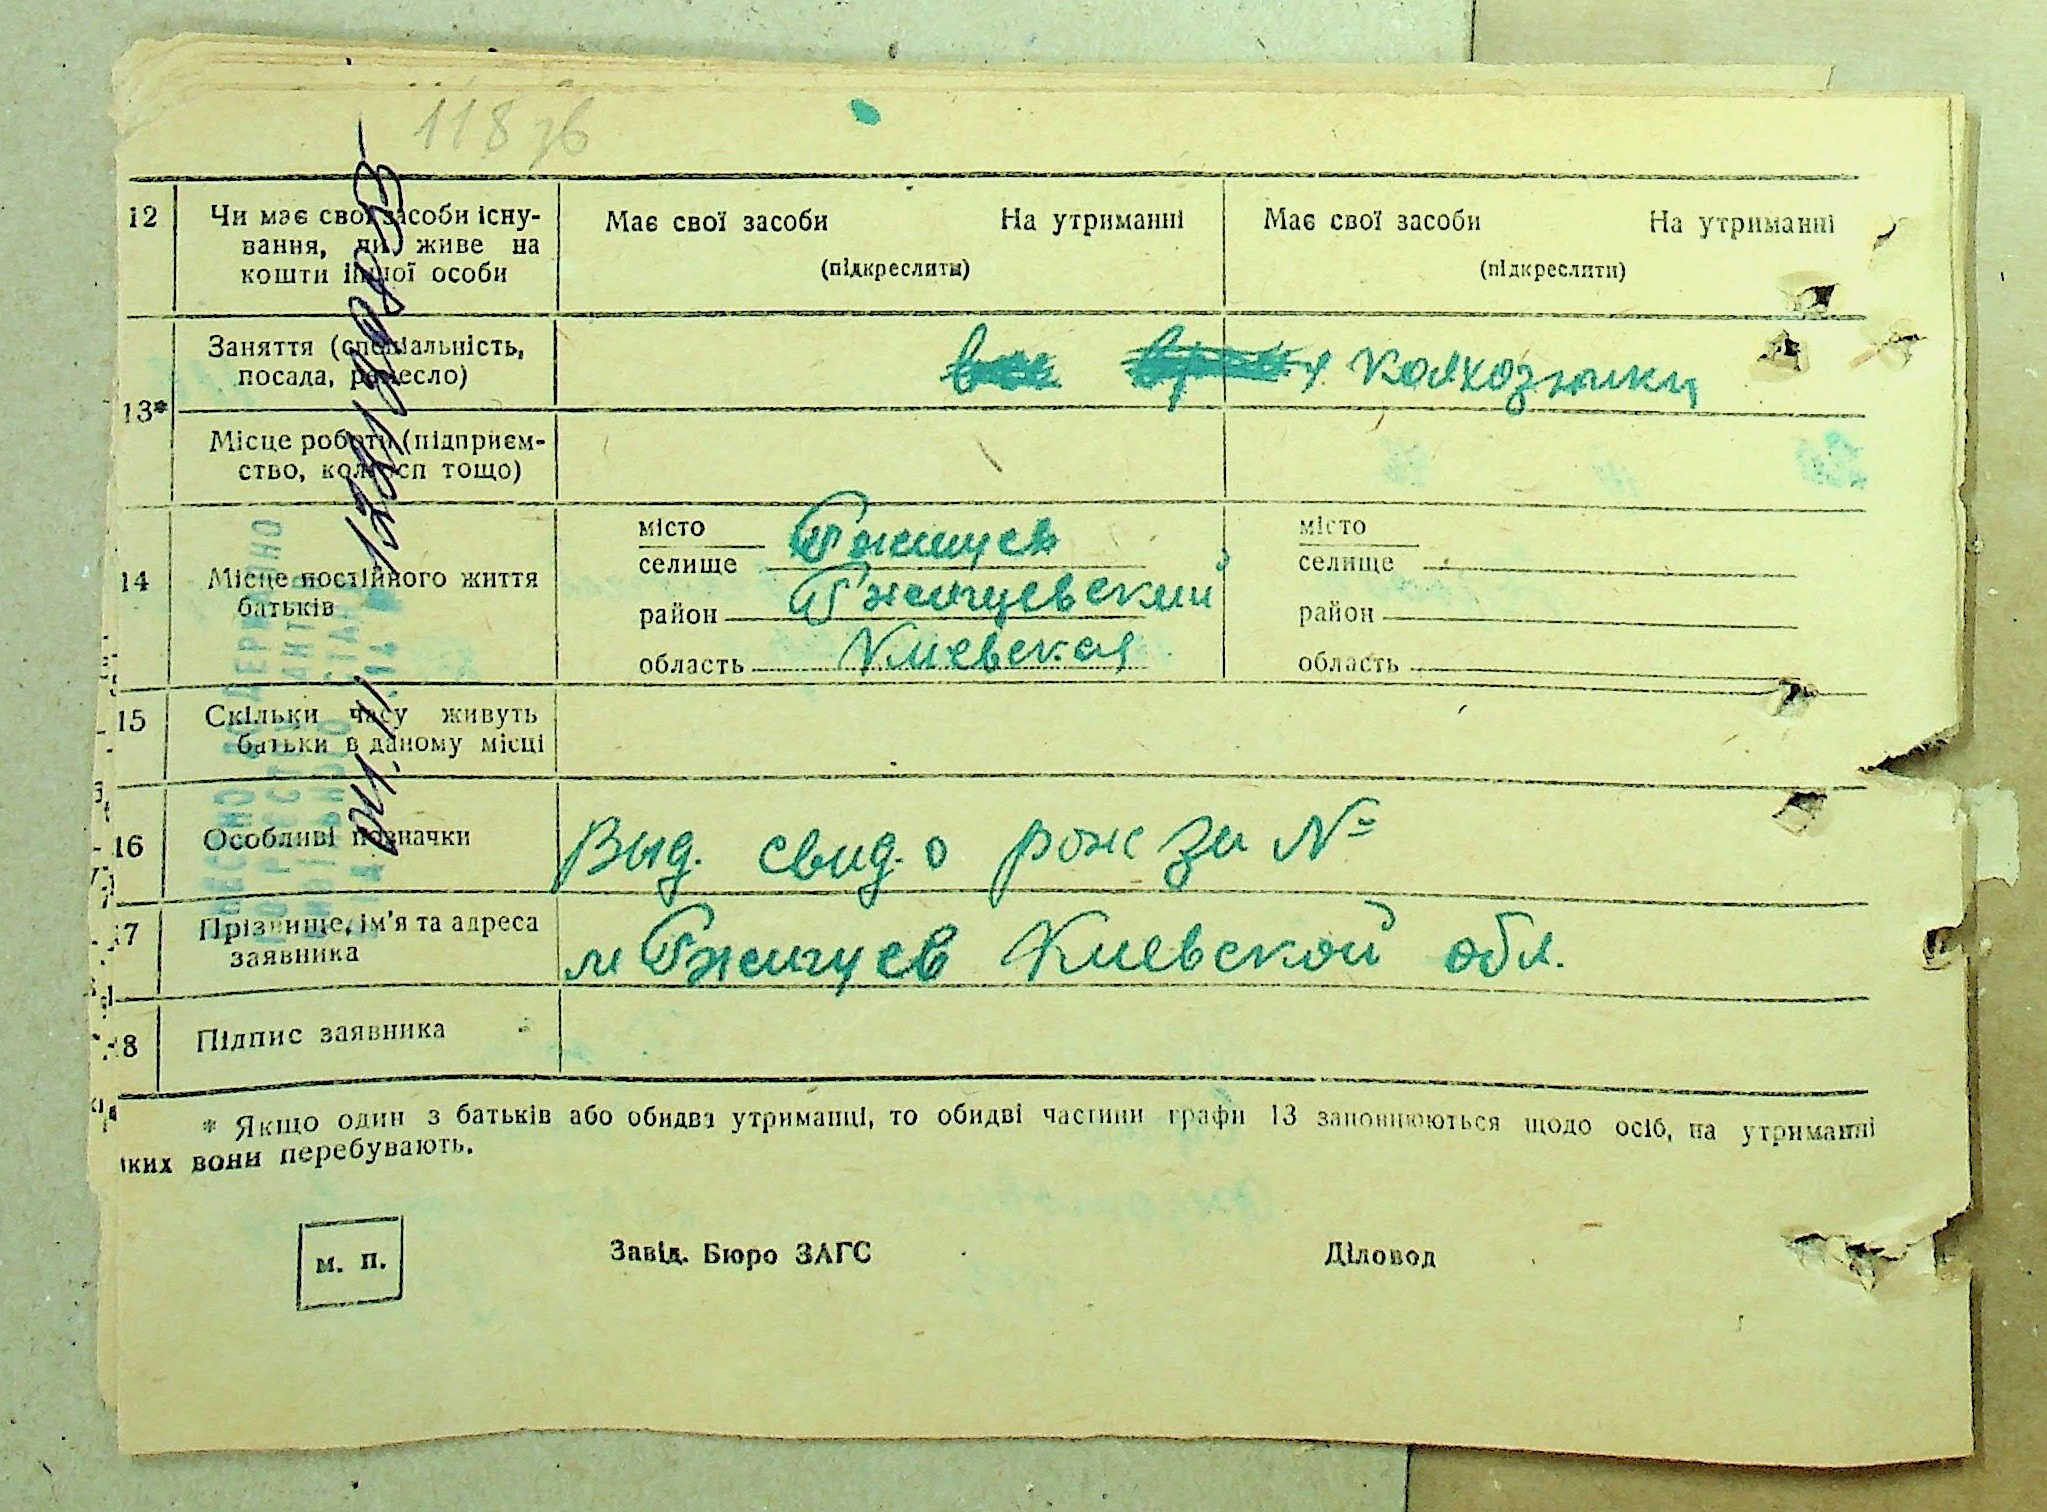 118 зв
12 Чи має свої засоби існу- Має свої засоби На утриманні Має свої засоби На утриманні
вання, чи живе на
кошти іншої особи (підкреслити) (підкреслити)
Заняття (спеціальність, колхозники
посада, ремесло)
13*
Місце роботи (підприєм-
ство, колгосп тощо)
місто Ржищев місто
селище селище
14 Місце постійного життя Ржищевский
батьків район район
область Киевская область
15 Скільки часу живуть
батьки в даному місці
16 Особливі позначки Выд. свид. о рож за №
17 Прізвище, ім'я та адреса м Ржищев Киевской обл.
заявника
18 Підпис заявника
* Якщо один з батьків або обидва утриманці, то обидві частини графи 13 заповнюються щодо осіб, на утриманні
яких вони перебувають.
м. п. Завід. Бюро ЗАГС Діловод